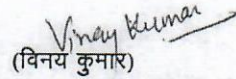 Vinay Kumar
(विनय कुमार)